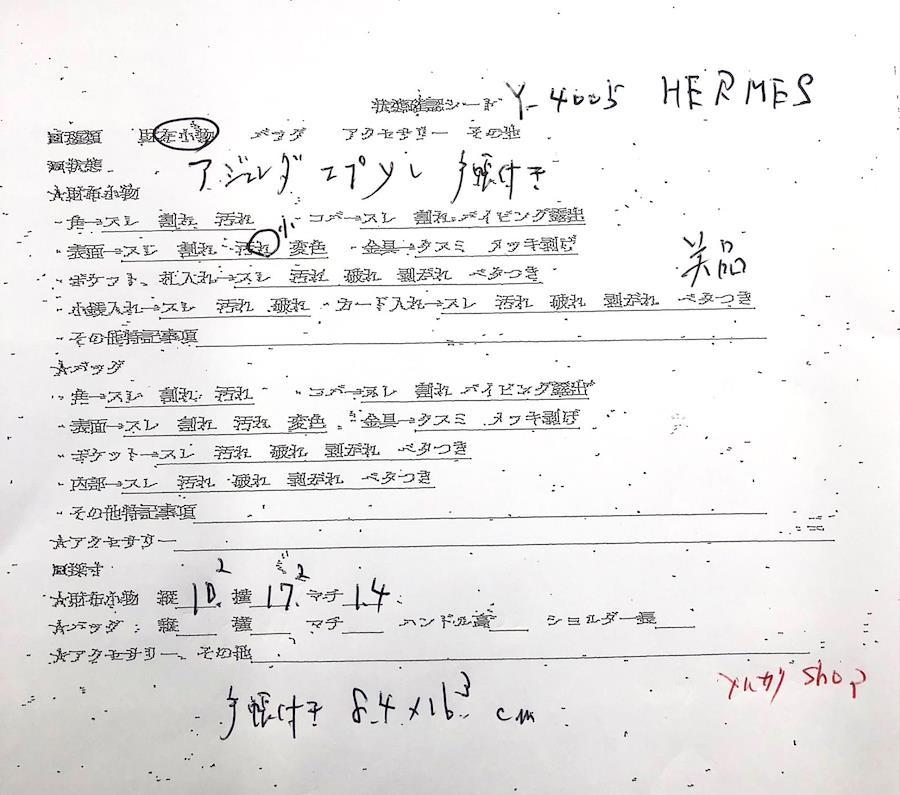 状態確認シート Y-4005 HERMES
■種類 財布小物 バッグ アクセサリー その他
■状態 アジェンダ エプソン 手帳付き
★財布小物
・角→スレ 割れ 汚れ ・コバ→スレ 割れ パイピング露出
小
・表面→スレ 割れ 汚れ 変色 ・金具→クスミ メッキ剥げ
美品
・ポケット、札入れ→スレ 汚れ 破れ 剥がれ ベタつき
・小銭入れ→スレ 汚れ 破れ ・カード入れ→スレ 汚れ 破れ 剥がれ ベタつき
・その他特記事項
★バッグ
・角→スレ 割れ 汚れ ・コバ→スレ 割れ パイピング露出
・表面→スレ 割れ 汚れ 変色 ・金具→クスミ メッキ剥げ
・ポケット→スレ 汚れ 破れ 剥がれ ベタつき
・内部→スレ 汚れ 破れ 剥がれ ベタつき
・その他特記事項
★アクセサリー
■採寸
★財布小物 縦 10.2 横 17.2 マチ 1.4
★バッグ 縦 横 マチ ハンドル高 ショルダー長
★アクセサリー、その他
メルカリ Shop
手帳付き 8.4×16.3 cm